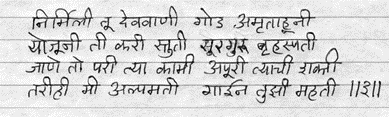 निर्मिली तू देववाणी गोड अमृताहूनी
योजूनी ती करी स्तुती सूरगुरू बृहस्पती
जाणे तो परी त्या कामी अपूरी त्याची शक्ती
तरीही मी अल्पमती गाईन तुझी महती ॥३॥